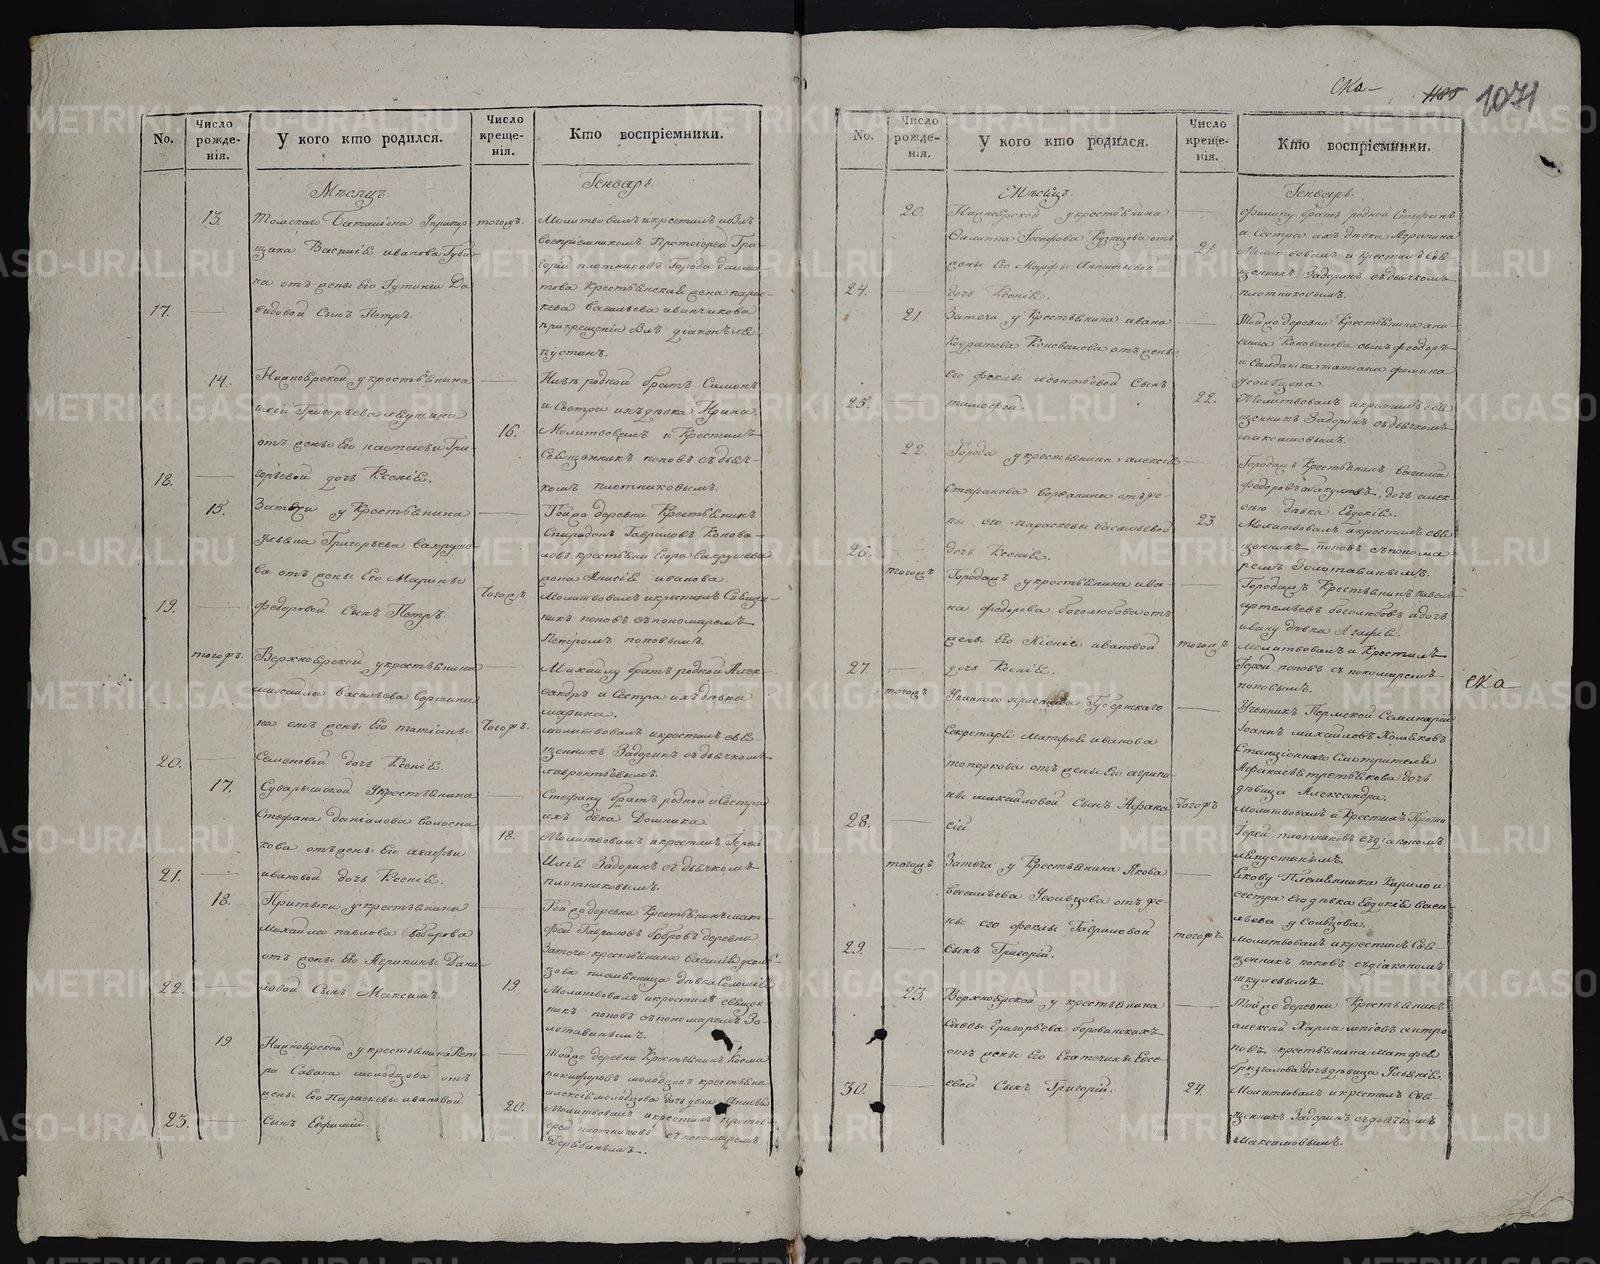 ска
1100
1071
No.
Число рожде-нія.
У кого кто родился.
Число креще-нія.
Кто воспріемники.
Мѣсяцъ
Генварь
13.
Томскаго Баталіона
тогожъ
щика Василіе иванова Губи-
на отъ жены Его Гутиніи Да-
17.
видовой Сынъ Петръ.
воспріемникомъ Протоіерей Гри-
горій плотниковъ Города далма-
това крестьянская жена парас-
кева Васильева иванчикова
при крещеніи былъ діаконъ ле-
пустинъ.
14.
Нижноярской у крестьянина
Григорьева леушина
отъ жены Его настасьи Гри-
18.
горьевой дочь Ксенія.
16.
родной братъ Симонъ
и Сестра ихъ дѣвка Ирина.
Молитвовалъ и Крестилъ
Священникъ поповъ съ дьяч-
комъ плотниковымъ.
15.
Затечи у Крестьянина
Ульяна Григорьева вахруше-
ва отъ жены Его Марины
19.
федоровой Сынъ Петръ.
Тогожъ
Тойже деревни Крестьянинъ
Спиридонъ Гавриловъ Конова-
ловъ крестьяни Егора вахрушева
жена Анисія иванова.
Молитвовалъ и крестилъ Священ-
никъ поповъ съ пономаремъ
Петромъ поповымъ.
тогожъ.
Верхноярской у крестьянина
михайла васильева
на отъ жены Его татіаны
20.
Семеновой дочь Ксенія.
Тогожъ.
Михайлу братъ родной Алек-
сандръ и Сестра ихъ дѣвка
марина.
молитвовалъ и крестилъ свя-
щенникъ Задоринъ съ дьячкомъ
лаврентьевымъ.
17.
У крестьянина
Стефана даніалова волосни-
кова отъ жены Его агафьи
21.
ивановой дочь Ксенія.
18.
Стефану братъ родной и Сестра
ихъ дѣвка Домника.
Молитвовалъ и крестилъ Іерей
Иліе Задоринъ съ дьячкомъ
плотниковымъ.
18.
Притыки у крестьянина
Михайла павлова боброва
отъ жены Его Агрипины Дани-
22.
ловой Сынъ Максимъ
19.
Тойже деревни Крестьянинъ мат-
фей Гавриловъ бобровъ деревни
Затечи крестьянина василіе усоль-
цова племянница дѣвка Соломія
Молитвовалъ и крестилъ священ-
никъ поповъ съ пономаремъ Зо-
лотавинымъ.
19.
Нижноярской у крестьянина Пет-
ра Савина молодцова отъ
жены Его Параскевы ивановой
23.
Сынъ Евфимій.
20.
Тойже деревни Крестьянинъ Косма
никифоровъ молодцовъ крестьяни-
алексія молодцова дочь дѣвка
Молитвовалъ и крестилъ протоі-
ерей плотниковъ съ пономаремъ
Дерябинымъ.
No.
Число рожде-нія.
У кого кто родился.
Число креще-нія.
Кто воспріемники.
Мѣсяцъ
Генварь
20.
Нижноярской у крестьянина
Филиппа Іосифова Кузнецова отъ
жены Его Марфы Антипьевой
24.
дочь Ксенія.
21.
Филипу братъ родной Стефанъ
и Сестра ихъ дѣвка Агрипина
Молитвовалъ и крестилъ Свя-
щенникъ Задоринъ съ дьячкомъ
плотниковымъ.
21.
Затечи у Крестьянина ивана
Кодратова Коновалова отъ жены
Его феклы леонтьевой Сынъ
25.
тимофей.
22.
Тойже деревни Крестьянина ани-
сима Коновалова сынъ феодоръ
и Салдатка татіана фомина
Усольцова.
Молитвовалъ и крестилъ Свя-
щенникъ Задоринъ съ дьячкомъ
максимовымъ.
22.
Города у крестьянина алексіе
Стефанова отъ же-
ны его параскевы васильевой
26.
дочь Ксенія.
23
Городамъ Крестьянинъ василій
федоровъ бакуловъ, дочь алек-
сію дѣвка Евдокія.
Молитвовалъ и крестилъ свя-
щенникъ поповъ съ понома-
ремъ Золотавинымъ.
тогожъ
Городамъ у крестьянина ива-
на федорова боголюбова отъ
жены Его ивановой
27.
дочь Ксенія.
тогожъ
Городамъ Крестьянинъ павелъ
артемьевъ боголюбовъ и дочь
ивану дѣвка Агафія.
Молитвовалъ и Крестилъ
Іерей поповъ съ пономаремъ
поповымъ.
ска
тогожъ
Губернскаго
Секретаря Матфея иванова
топоркова отъ жены Его агрипи-
ны михайловой Сынъ Афана-
28.
сій
Тогожъ
Ученикъ Пермской Семинаріи
Іоаннъ михайловъ Хомяковъ
Станціоннаго Смотрителя
Афанасья третьякова дочь
дѣвица Александра.
Молитвовалъ и Крестилъ Прото-
Іерей плотниковъ съ діакономъ
лепустинымъ.
тогожъ
Затечи у Крестьянина Якова
васильева Усольцова отъ же-
ны его феклы Гавриловой
29.
сынъ Григорій.
тогожъ
Екову Племянникъ Кирило и
сестра Его дѣвка Евдокія васи-
льева усольцова.
Молитвовалъ и крестилъ Свя-
щенникъ поповъ съ діакономъ
23.
Верхноярской у крестьянина
Саввы Григорьева боровинскихъ
отъ жены Его Екатерины Евсе-
30.
евой Сынъ Григорій.
24.
Тойже деревни Крестьянинъ
алексій Харлампіевъ антро-
повъ крестьянина матфея
брызгалова дочь дѣвица Ульянія.
Молитвовалъ и крестилъ Свя-
щенникъ Задоринъ съ дьячкомъ
Максимовымъ.
METRIKI.GASO-URAL.RU